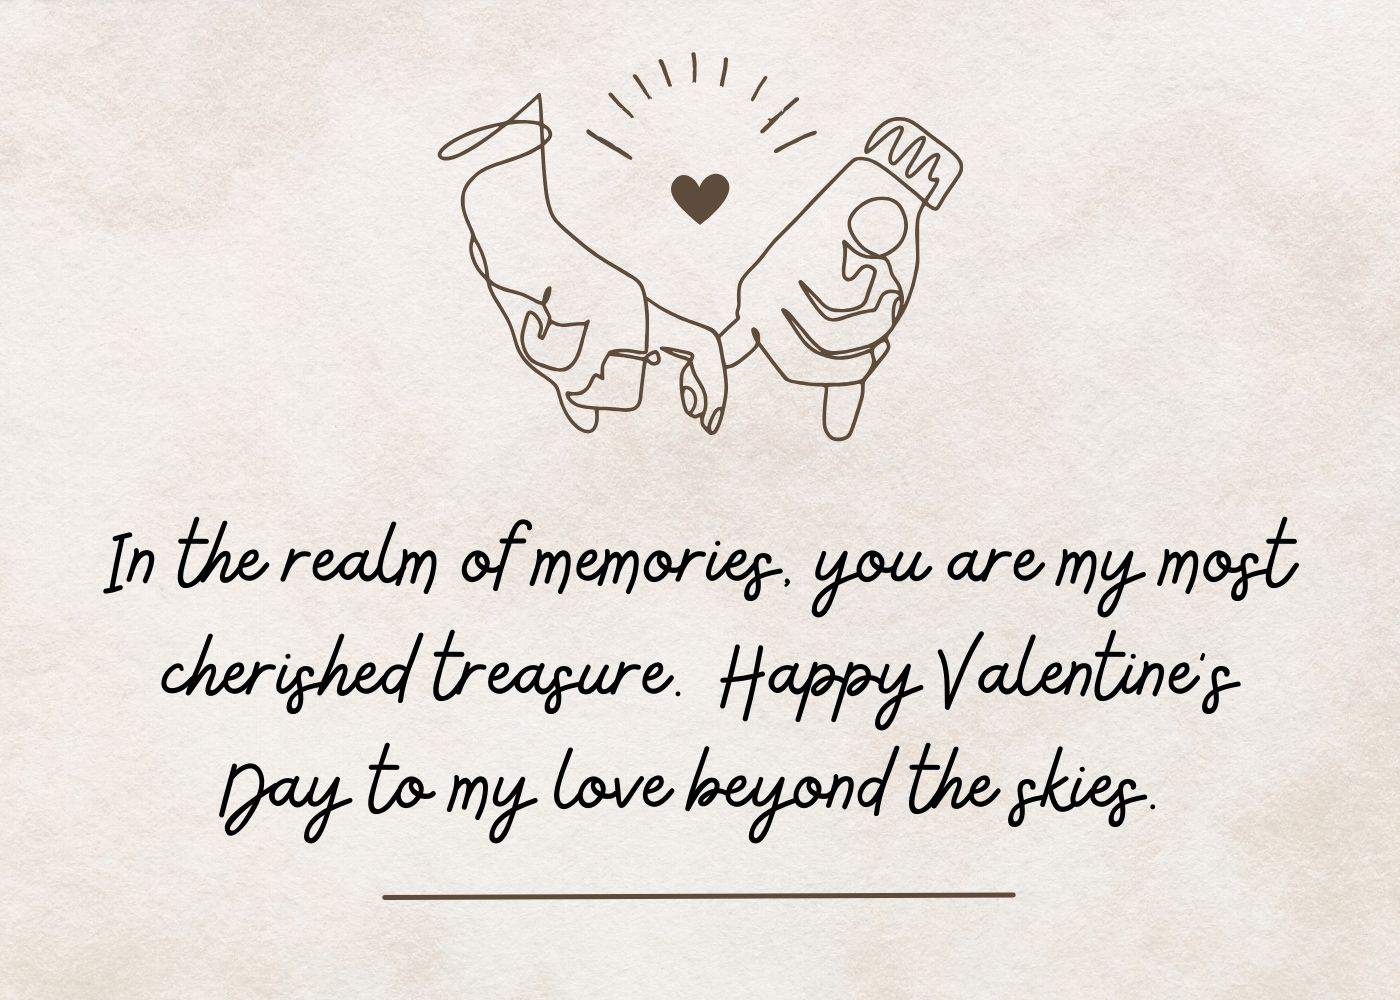 In the realm of memories, you are my most
cherished treasure. Happy Valentine's
Day to my love beyond the skies.